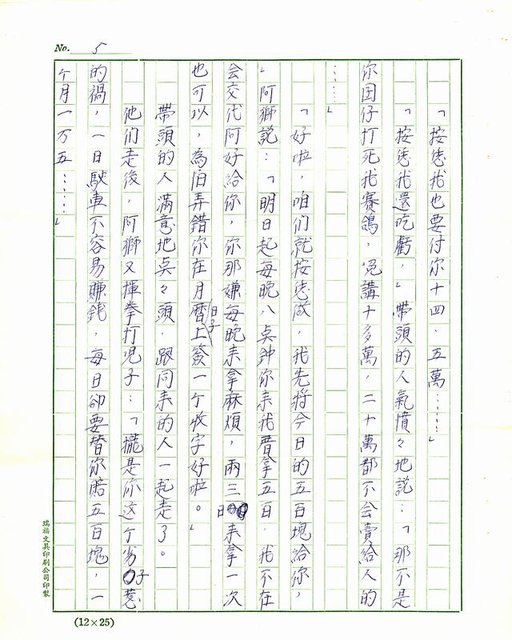 No. 5
「按恁我也要付你十四、五萬……」
「按恁我還吃虧，」帶頭的人氣憤々地說：「那不是
你囝仔打死我賽鴿，免講十多萬，二十萬都不会賣給人的
……」
「好啦，咱们就按恁做，我先將今日的五百塊給你，
」阿獅說：「明日起每晚八点鐘你来我厝拿五百，我不在
会交代阿好給你，你那嫌每晚来拿麻煩，兩三日来拿一次
也可以，為怕弄錯你在月曆日子上簽一个收字好啦。」
帶頭的人滿意地点々頭，跟同来的人一起走了。
他们走後，阿獅又揮拳打児子：「攏是你这个夯子惹
的禍，一日駛車不容易賺錢，每日卻要替你賠五百塊，一
个月一万五……」
瑞福文具印刷公司印製
(12×25)